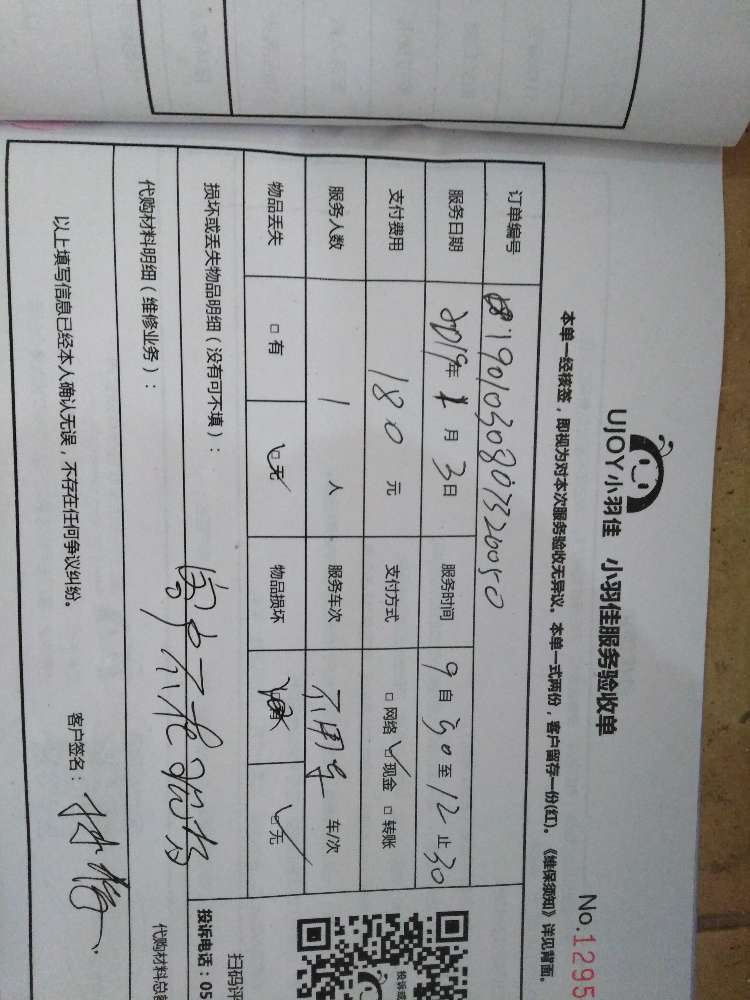 UJOY小羽佳 小羽佳服务验收单
No.1295
本单一经核签，即视为对本次服务验收无异议。本单一式两份，客户留存一份(红)。《维保须知》详见背面。
订单编号 1901030807320050
服务日期 2019年1月3日 服务时间 9自30至12止30
支付费用 180元 支付方式 □网络 ☑现金 □转账
服务人数 1人 服务车次 不用车 车/次
物品丢失 □有 ☑无 物品损坏 ☑无
损坏或丢失物品明细（没有可不填）：
代购材料明细（维修业务）： 代购材料总
以上填写信息已经本人确认无误，不存在任何争议纠纷。 客户签名：
扫码评
投诉电话：05